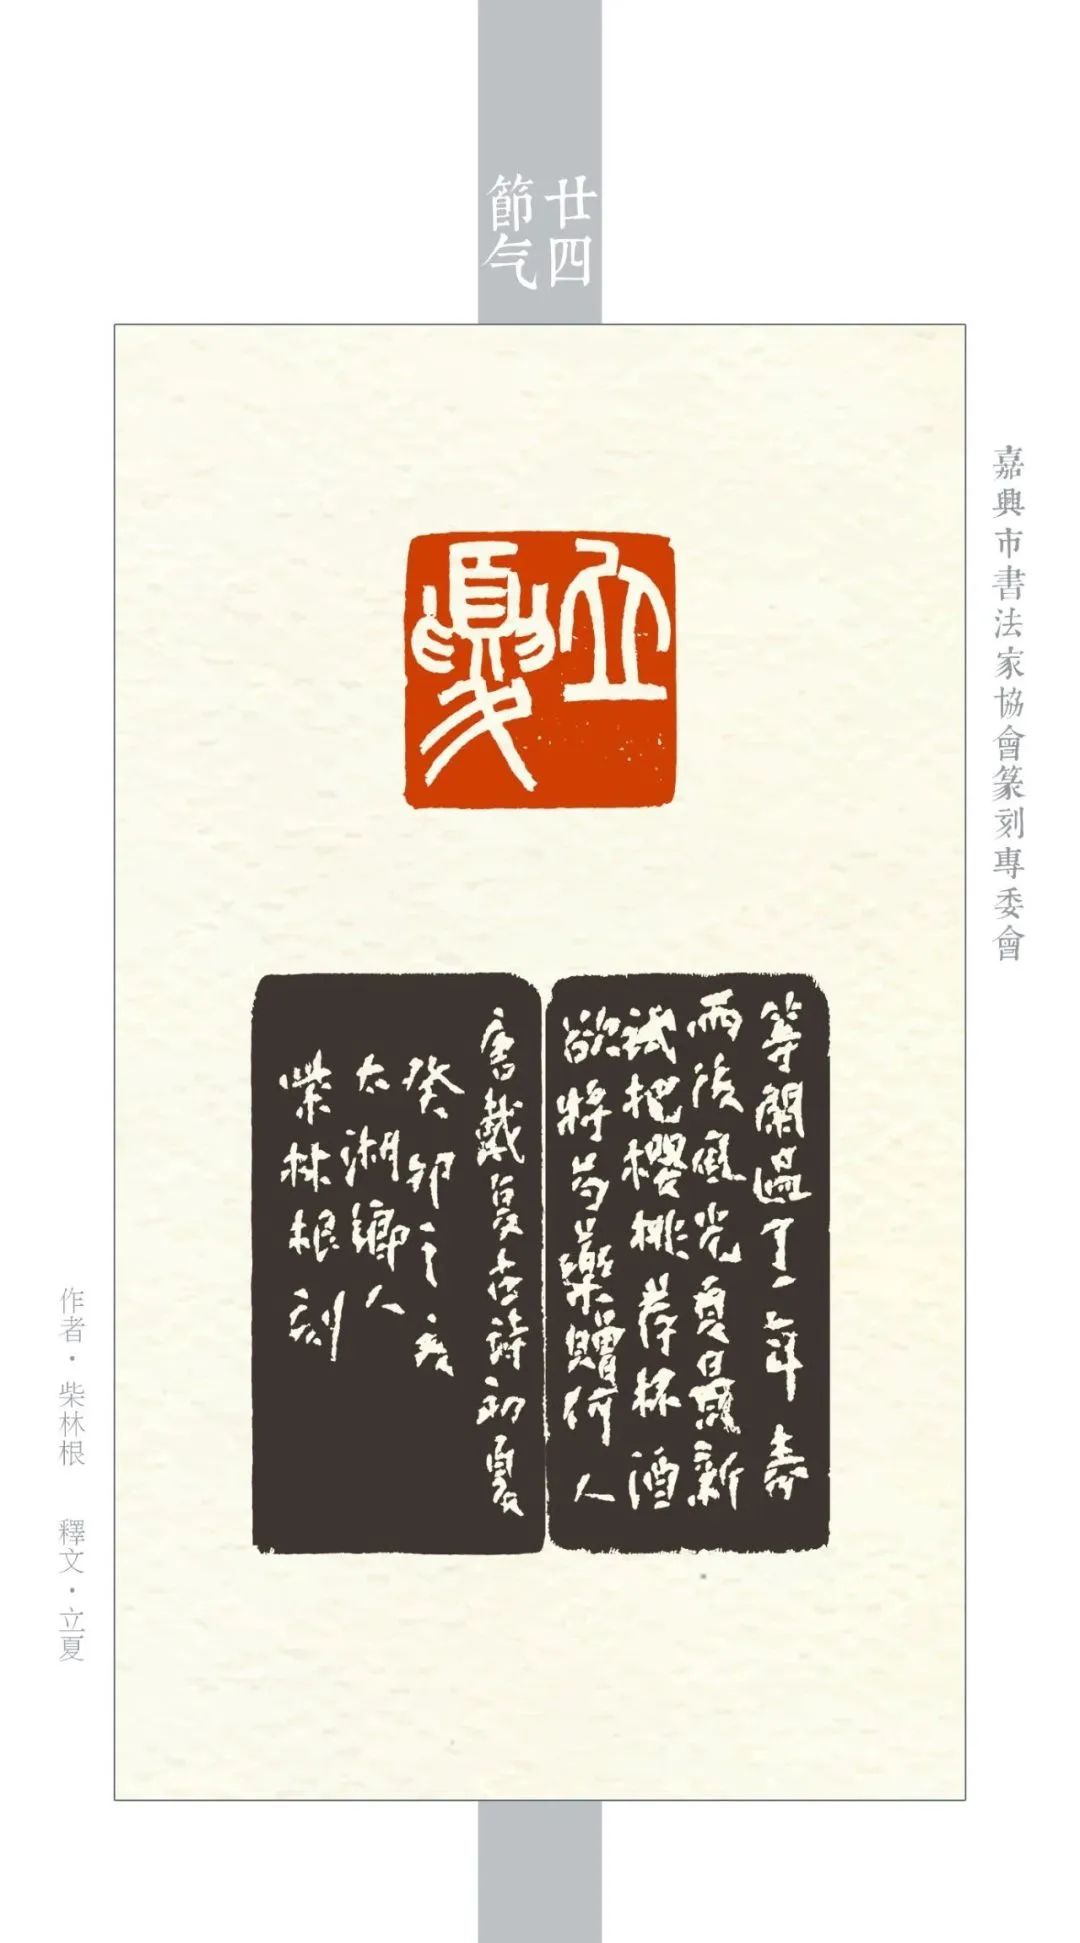 廿四
節气
嘉興市書法家協會篆刻專委會
立夏
等閑過了一年春
雨後風光夏最新
試把櫻桃荐杯酒
欲將芍藥贈何人
唐戴复古詩初夏
癸卯之夏
太湖鄉人
柴林根刻
作者·柴林根 釋文·立夏